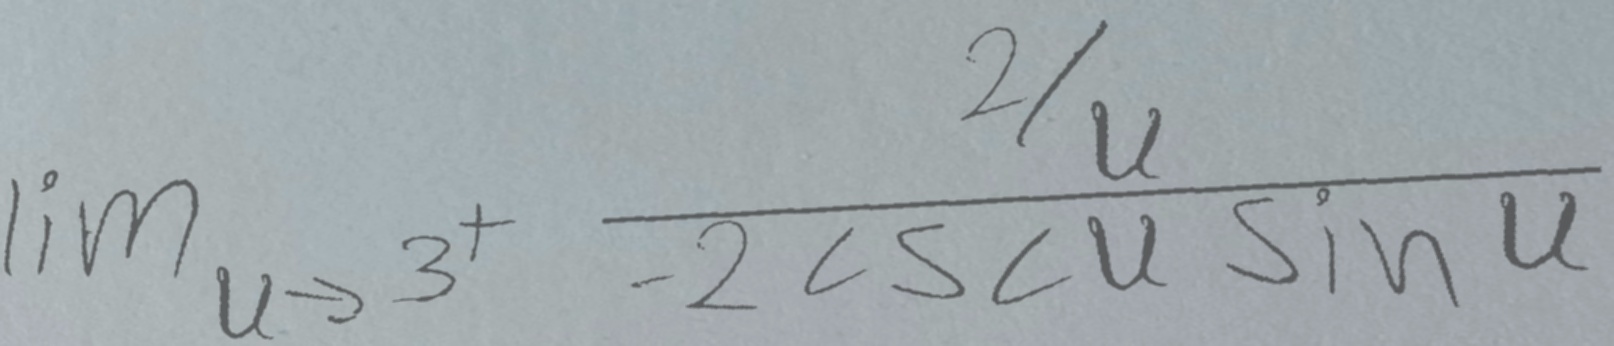 lim_{u→3^+} \frac{2/u}{-2 csc u sin u}